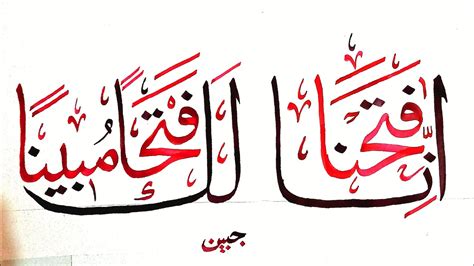 إنا فتحنا لك فتحا مبينا
جبين